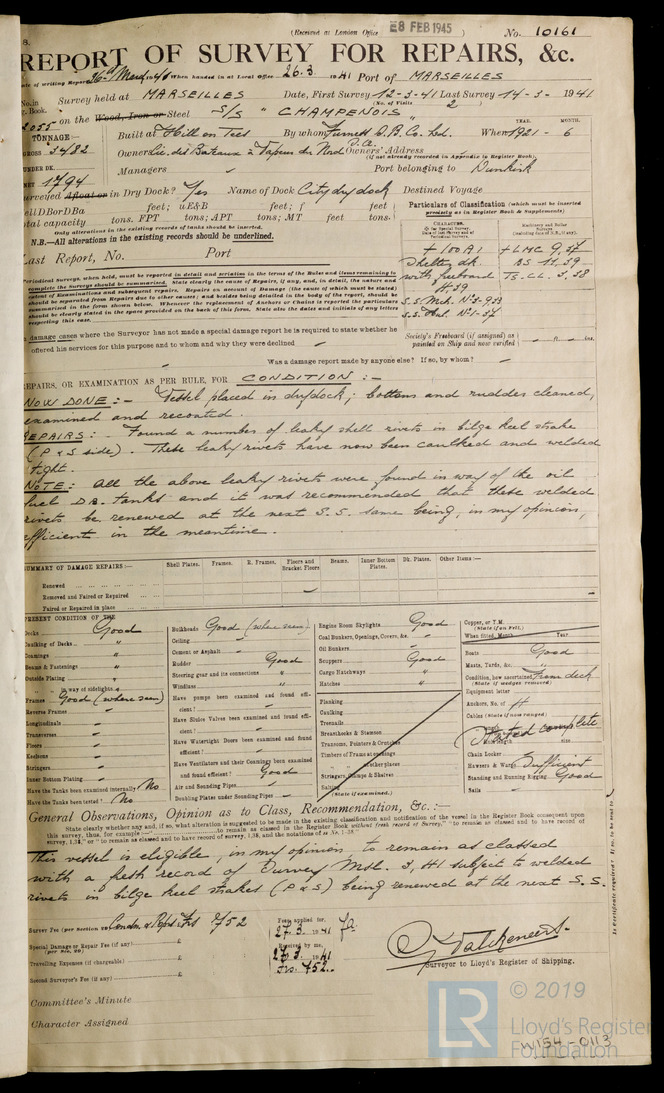 (Received at London Office 28 FEB 1945 )
No. 10161
REPORT OF SURVEY FOR REPAIRS, &c.
When handed in at Local Office 26.3.1941 Port of MARSEILLES
Survey held at MARSEILLES Date, First Survey 12-3-41 Last Survey 14-3-1941
(No. of Visits 2 )
on the Wood, Iron or Steel S/S " CHAMPENOIS "
TONNAGE:—
YEAR. MONTH.
GROSS 3482 Built at Hill on Tees By whom Furness S.B. Co. Ld. When 1921 - 6
Owners Cie. des Bateaux à Vapeur du Nord S.A. Owners' Address
(if not already recorded in Appendix to Register Book).
UNDER DK.
Managers Port belonging to Dunkirk
NET 1794
Surveyed Afloat or in Dry Dock? Yes Name of Dock City dry dock Destined Voyage
feet; uE&B feet; f feet
tons. FPT tons; APT tons; MT feet tons.
Only alterations in the existing records of tanks should be inserted.
N.B.—All alterations in the existing records should be underlined.
Last Report, No. Port
Particulars of Classification (which must be inserted
precisely as in Register Book & Supplements)
+ 100 A1 + LMC 9,37
Shelter dk. BS 11,39
with freeboard TS. CL. 3,38
Society's Freeboard (if assigned) as
painted on Ship and now verified
Periodical Surveys, when held, must be reported in detail and seriatim in the terms of the Rules and items remaining to
complete the Surveys should be summarised. State clearly the cause of Repairs, if any, and, in detail, the nature and
extent of Examinations and subsequent repairs. Repairs on account of Damage (the cause of which must be stated)
should be separated from Repairs due to other causes; and besides being detailed in the body of the report, should be
summarised in the form shown below. Whenever the replacement of Anchors or Chains is reported the particulars
should be clearly stated in the space provided on the back of this form. State also the dates and initials of any letters
respecting this case.
In damage cases where the Surveyor has not made a special damage report he is required to state whether he
offered his services for this purpose and to whom and why they were declined
Was a damage report made by anyone else? If so, by whom?
REPAIRS, OR EXAMINATION AS PER RULE, FOR CONDITION :-
NOW DONE :- Vessel placed in drydock; bottom and rudder cleaned,
examined and recoated.
REPAIRS : Found a number of leaky shell rivets in bilge keel strake
(P & S side). These leaky rivets have now been caulked and welded
tight.
NOTE : All the above leaky rivets were found in way of the oil
fuel D.B. tanks and it was recommended that these welded
rivets be renewed at the next S.S. same being, in my opinion,
efficient in the meantime.
SUMMARY OF DAMAGE REPAIRS:— Shell Plates. Frames. R. Frames. Floors and Bracket Floors Beams. Inner Bottom Plates. Dk. Plates. Other Items:—
Renewed
Removed and Faired or Repaired
Faired or Repaired in place
PRESENT CONDITION OF THE
Decks Good
Caulking of Decks "
Coamings "
Beams & Fastenings "
Outside Plating "
" " in way of sidelights "
Frames Good (where seen)
Reverse Frames "
Longitudinals
Transverses
Floors
Keelsons
Stringers
Inner Bottom Plating
Have the Tanks been examined internally No
Have the Tanks been tested? No
Bulkheads Good (where seen)
Ceiling
Cement or Asphalt
Rudder Good
Steering gear and its connections "
Windlass "
Have pumps been examined and found efficient?
Have Sluice Valves been examined and found efficient?
Have Watertight Doors been examined and found efficient?
Have Ventilators and their Coamings been examined
and found efficient? Good
Air and Sounding Pipes
Doubling Plates under Sounding Pipes
Engine Room Skylights Good
Coal Bunkers, Openings, Covers, &c.
Oil Bunkers
Scuppers Good
Cargo Hatchways "
Hatches "
Planking
Caulking
Treenails
Breasthooks & Stanson
Transoms, Pointers & Crutches
Timbers of Frame at openings
" " other places
Stringers, Clamps & Shelves
Salting
(State if examined.)
Copper, or Y.M.
(State if on Felt.)
When fitted, Month Year
Boats Good
Masts, Yards, &c. "
Condition, how ascertained From deck
(State if wedges removed)
Equipment letter
Anchors, No. of
Cables (State if now ranged)
Stated complete
length size
Chain Locker
Hawsers & Warps Sufficient
Standing and Running Rigging Good
Sails
General Observations, Opinion as to Class, Recommendation, &c.:—
State clearly whether any and, if so, what alteration is suggested to be made in the existing classification and notification of the vessel in the Register Book consequent upon
This vessel is eligible, in my opinion to remain as classed
with a fresh record of Survey Msl. 3,41 subject to welded
rivets in bilge keel strakes (P & S) being renewed at the next S.S.
Survey Fee (per Section 29) £ Condn. & Reps. Frs 752
Special Damage or Repair Fee (if any) £
(per Sec. 29)
Travelling Expenses (if chargeable) £
Second Surveyor's Fee (if any) £
Fees applied for,
27.3.1941
Received by me,
27.3.1941
Frs. 752
Surveyor to Lloyd's Register of Shipping.
Committee's Minute
Character Assigned
LR © 2019
Lloyd's Register
Foundation
W154-0113